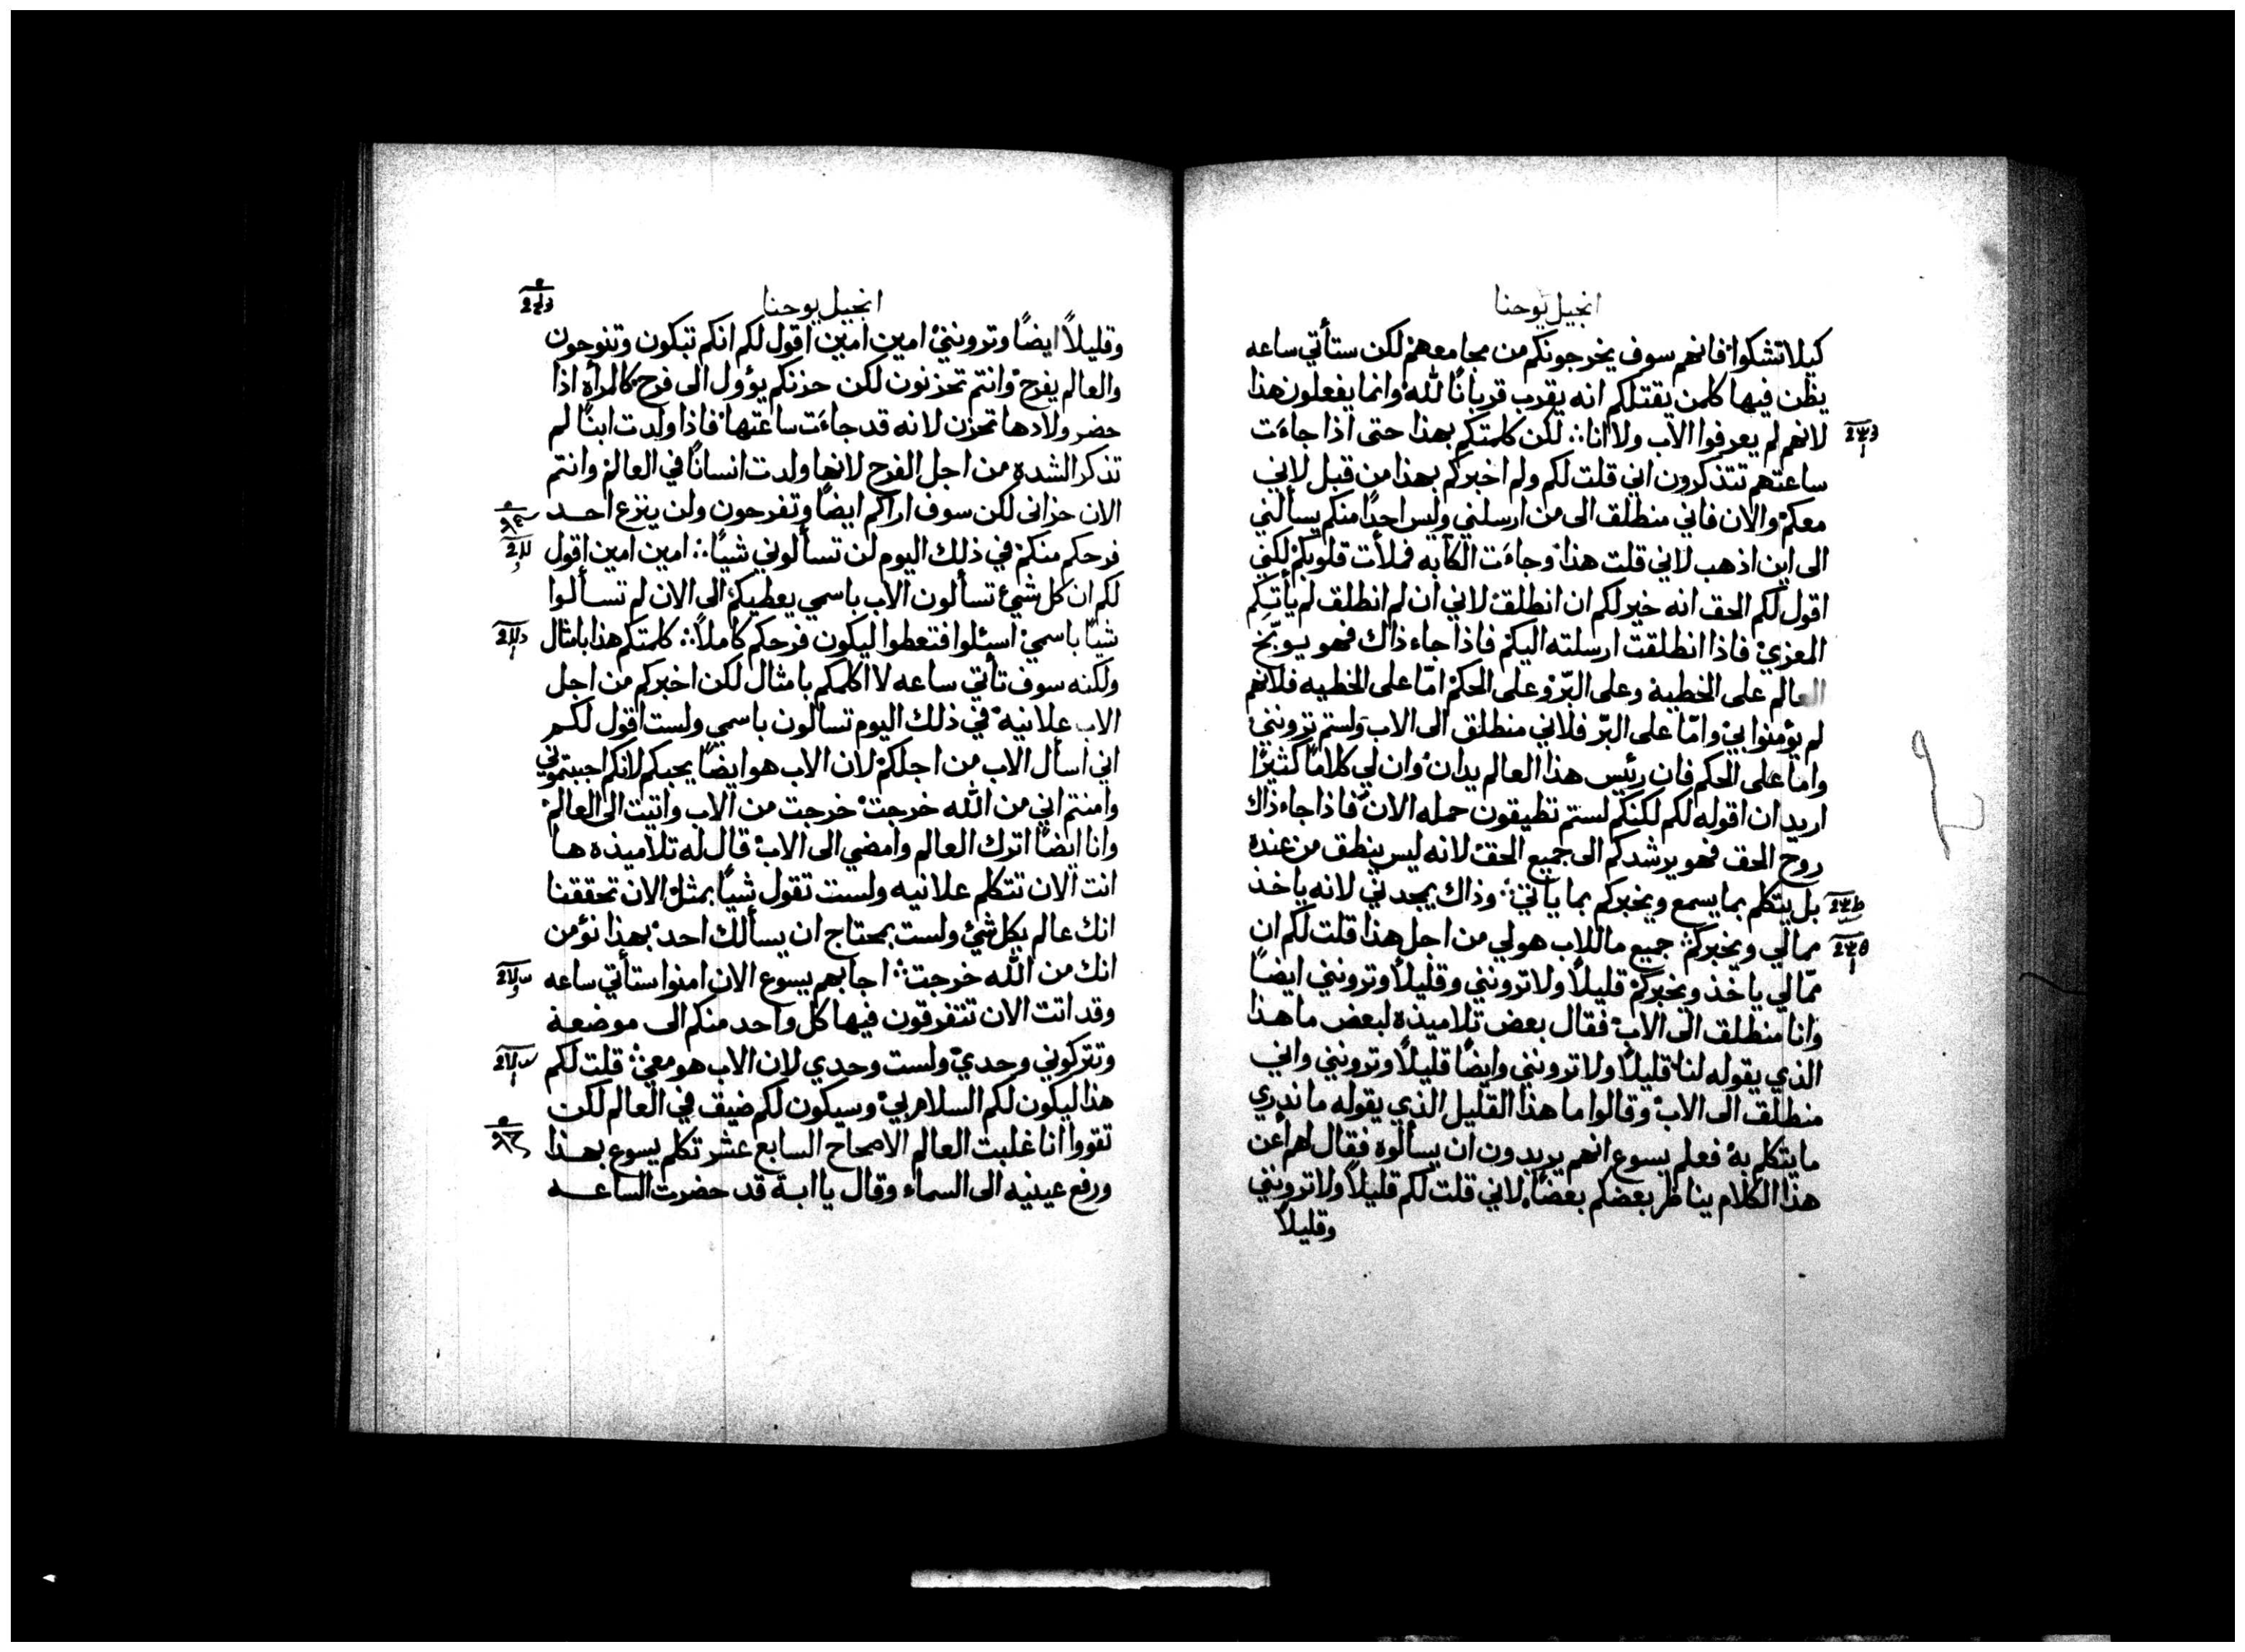 انجيل يوحنا
كيلا تشكوا فانهم سوف يخرجونكم من مجامعهم لكن ستأتي ساعه
يظن فيها كلمن يقتلكم انه يقرب قربانًا لله وانما يفعلون هذا
لانهم لم يعرفوا الاب ولا انا ∴ لكن كلمتكم بهذا حتى اذا جاءَت
ساعتهم تتذكرون اني قلت لكم ولم اخبركم بهذا من قبل لاني
معكم والان فاني منطلق الى من ارسلني وليس احدًا منكم يسألني
الى اين اذهب لاني قلت هذا وجاءَت الكآبه فملأت قلوبكم لكني
اقول لكم الحق انه خير لكم ان انطلق لاني ان لم انطلق لم يأتكم
المعزي فاذا انطلقت ارسلته اليكم فاذا جاء ذاك فهو يوبّخ
العالم على الخطية وعلى البّر وعلى الحكم امّا على الخطيه فلانهم
لم يؤمنوا بي وامّا على البّر فلاني منطلق الى الاب ولستم ترونني
واما على الحكم فان رئيس هذا العالم يدان وان لي كلامًا كثيرًا
اريد ان اقوله لكم لكنكم لستم تطيقون حمله الان فاذا جاء ذاك
روح الحق فهو يرشدكم الى جميع الحق لانه ليس ينطق من عنده
بل يتكلم بما يسمع ويخبركم بما ياتي ∴ وذاك يمجدني لانه ياخذ
ممالي ويخبركم ∴ جميع ما للاب هو لي من اجل هذا قلت لكم ان
ممّا لي ياخذ ويخبركم قليلاً ولا ترونني وقليلاً وترونني ايضًا
وانا منطلق الى الاب فقال بعض تلاميذه لبعض ما هذا
الذي يقوله لنا قليلاً ولا ترونني وايضًا قليلاً وترونني واني
منطلق الى الاب وقالوا ما هذا القليل الذي يقوله ما ندري
ما يتكلم به فعلم يسوع انهم يريدون ان يسألوه فقال لهم أعن
هذا الكلام يناظر بعضكم بعضًا لاني قلت لكم قليلاً ولا ترونني
وقليلاً
انجيل يوحنا
وقليلاً ايضًا وترونني امين امين اقول لكم انكم تبكون وتنوحون
والعالم يفرح وانتم تحزنون لكن حزنكم يؤول الى فرح كالمرأة اذا
حضر ولادها تحزن لانه قد جاءَت ساعتها فاذا ولدت ابنًا لم
تذكر الشدة من اجل الفرح لانها ولدت انسانًا في العالم وانتم
الان حزانى لكن سوف اراكم ايضًا وتفرحون ولن ينزع احد
فرحكم منكم في ذلك اليوم لن تسألوني شيًا ∴ امين امين اقول
لكم ان كل شيء تسألون الاب باسمي يعطيكم الى الان لم تسألوا
شيًا باسمي اسئلوا فتعطوا ليكون فرحكم كاملاً ∴ كلمتكم هذا بامثال
ولكنه سوف تأتي ساعه لا اكلمكم بامثال لكن اخبركم من اجل
الاب علانيه في ذلك اليوم تسالون باسمي ولست اقول لكم
اني أسأل الاب من اجلكم لان الاب هو ايضًا يحبكم لانكم احببتموني
وامنتم اني من الله خرجت خرجت من الاب واتيت الى العالم
وانا ايضًا اترك العالم وامضي الى الاب قال له تلاميذه ها
انت الان تتكلم علانيه ولست تقول شيًا بمثل الان تحققنا
انك عالم بكل شيء ولست بمحتاج ان يسألك احد بهذا نؤمن
انك من الله خرجت ∴ اجابهم يسوع الان امنوا ستأتي ساعه
وقد اتت الان تتفرقون فيها كل واحد منكم الى موضعة
وتتركوني وحدي ولست وحدي لان الاب هو معي ∴ قلت لكم
هذا ليكون لكم السلام بي وسيكون لكم ضيق في العالم لكن
تقووا انا غلبت العالم الاصحاح السابع عشر تكلم يسوع بهذا
ورفع عينيه الى السماء وقال يا ابة قد حضرت الساعه